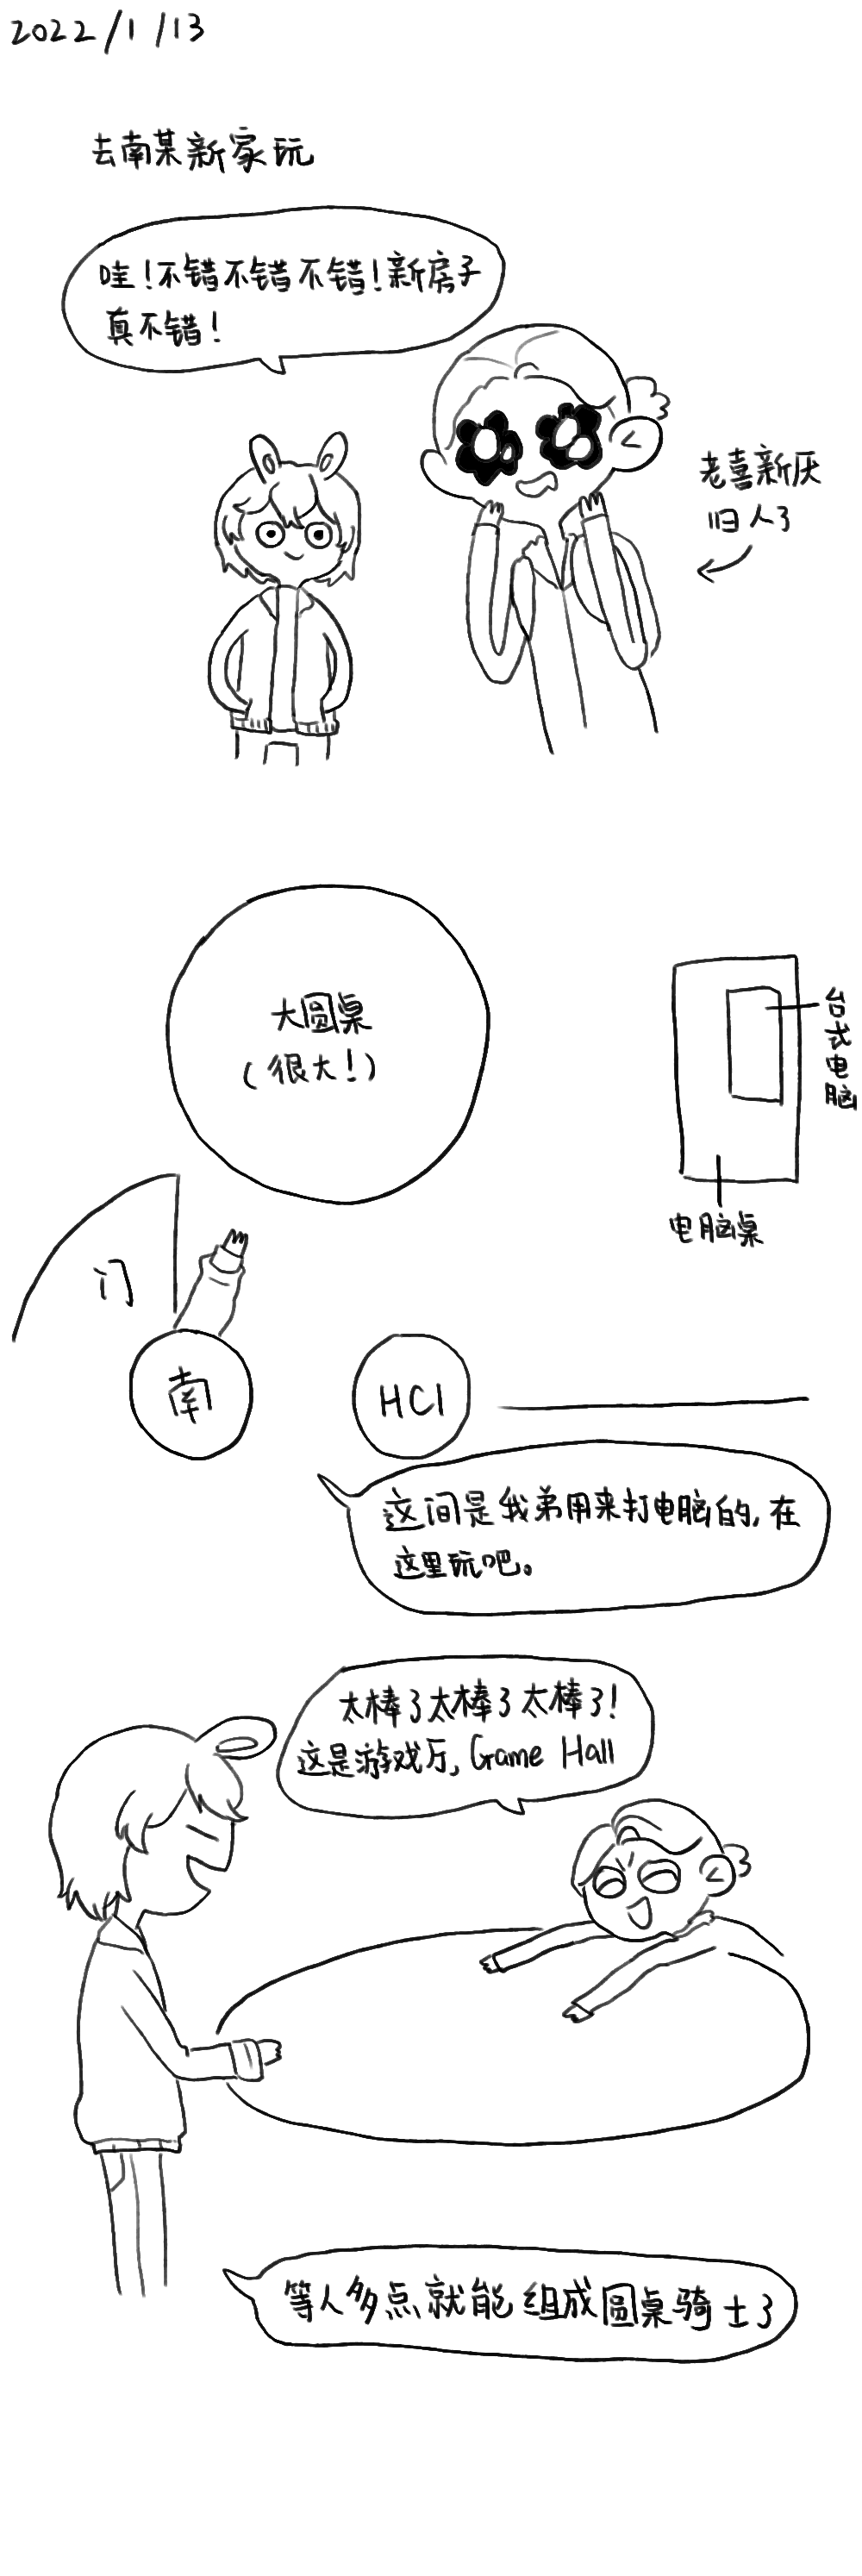 2022/1/13
去南某新家玩
哇！不错不错不错！新房子
真不错！
老喜新厌
旧人了
大圆桌
（很大！）
台式电脑
电脑桌
门
南
HCl
这间是我弟用来打电脑的，在
这里玩吧。
太棒了太棒了太棒了！
这是游戏厅，Game Hall
等人多点就能组成圆桌骑士了